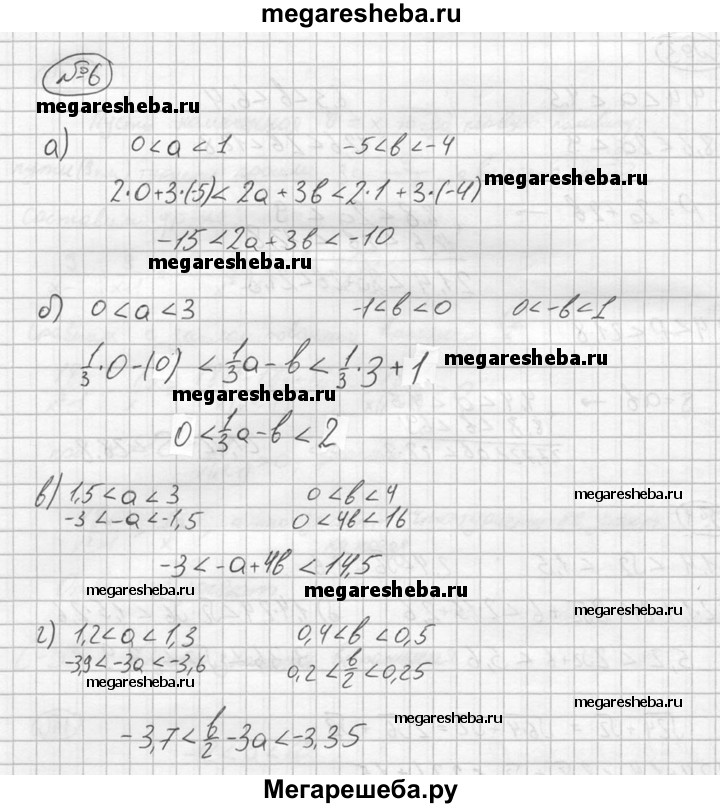 megaresheba.ru
№6
megaresheba.ru
а) 0 < a < 1 -5 < b < -4
2·0+3·(-5) < 2a + 3b < 2·1 + 3·(-4) megaresheba.ru
-15 < 2a + 3b < -10
megaresheba.ru
б) 0 < a < 3 -1 < b < 0 0 < -b < 1
1/3·0-(0) < 1/3a - b < 1/3·3 + 1 megaresheba.ru
megaresheba.ru
0 < 1/3a - b < 2
в) 1,5 < a < 3 0 < b < 4 megaresheba.ru
-3 < -a < -1,5 0 < 4b < 16
-3 < -a + 4b < 14,5
megaresheba.ru megaresheba.ru megaresheba.ru
г) 1,2 < a < 1,3 0,4 < b < 0,5
-3,9 < -3a < -3,6 0,2 < b/2 < 0,25
megaresheba.ru megaresheba.ru
-3,7 < b/2 - 3a < -3,35 megaresheba.ru
Мегарешеба.ру